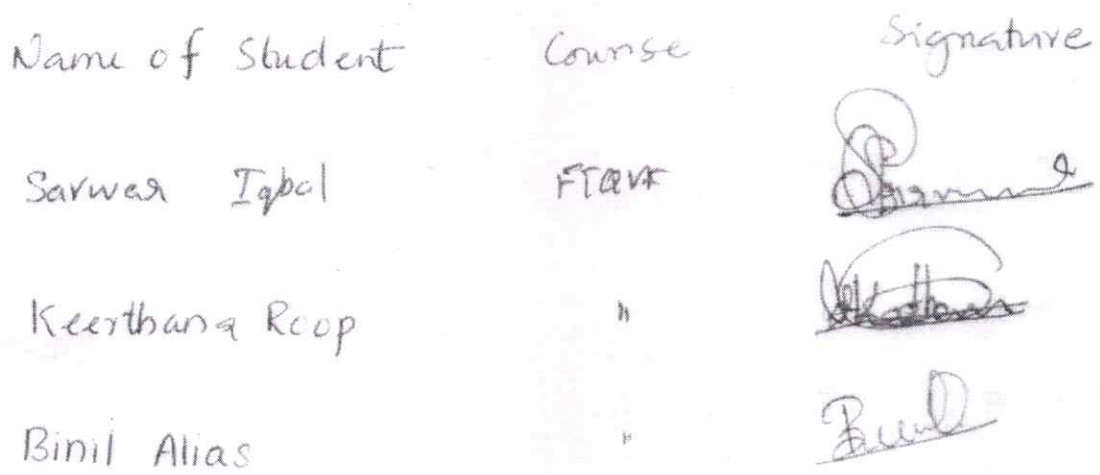 Name of Student Course Signature
Sarwar Iqbal FTQVF
Keerthana Roop "
Binil Alias "